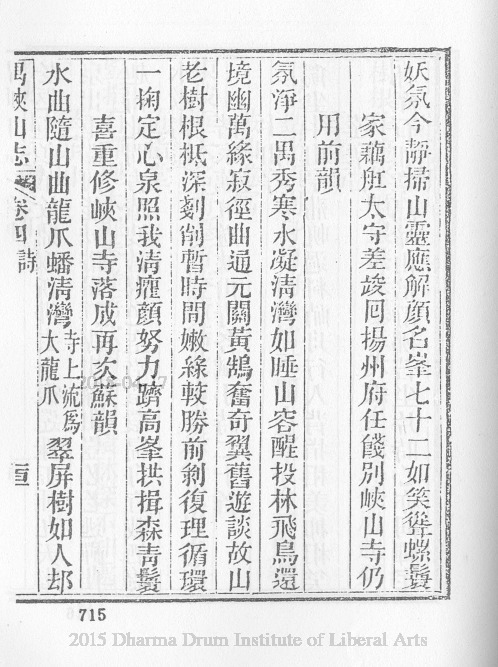 妖氛今靜掃山靈應解顏名峯七十二如笑聳螺鬟
家藕舡太守差竣囘揚州府任餞別峽山寺仍
用前韻
氛淨二禺秀寒水凝清灣如睡山容醒投林飛鳥還
境幽萬緣寂徑曲通元關黃鵠奮奇翼舊遊談故山
老樹根柢深刻削暫時間嫩綠較勝前剝復理循環
一掬定心泉照我清癯顏努力躋高峯拱揖森青鬟
喜重修峽山寺落成再次蘇韻
水曲隨山曲龍爪蟠清灣寺上流爲大龍爪翠屏樹如人却
禺峽山志 卷四 詩
715
2015 Dharma Drum Institute of Liberal Arts